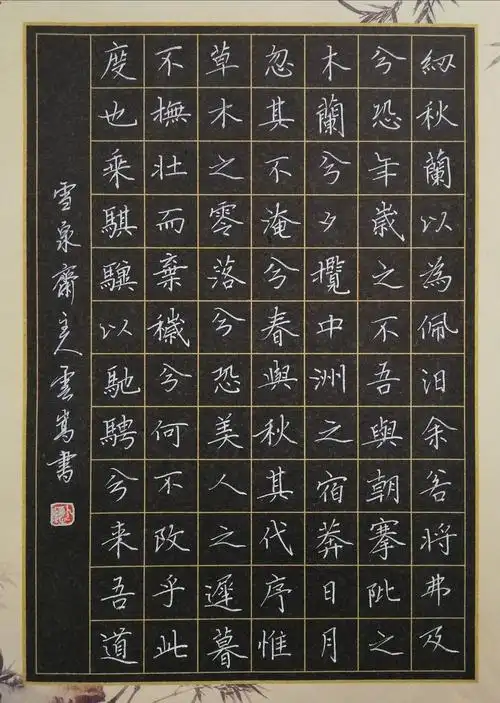 紉秋蘭以為佩汩余若將弗及
兮恐年歲之不吾與朝搴阰之
木蘭兮夕攬中洲之宿莽日月
忽其不淹兮春與秋其代序惟
草木之零落兮恐美人之遲暮
不撫壯而棄穢兮何不改乎此
度也乘騏驥以馳騁兮来吾道
雪泉齋主人雲嵩書